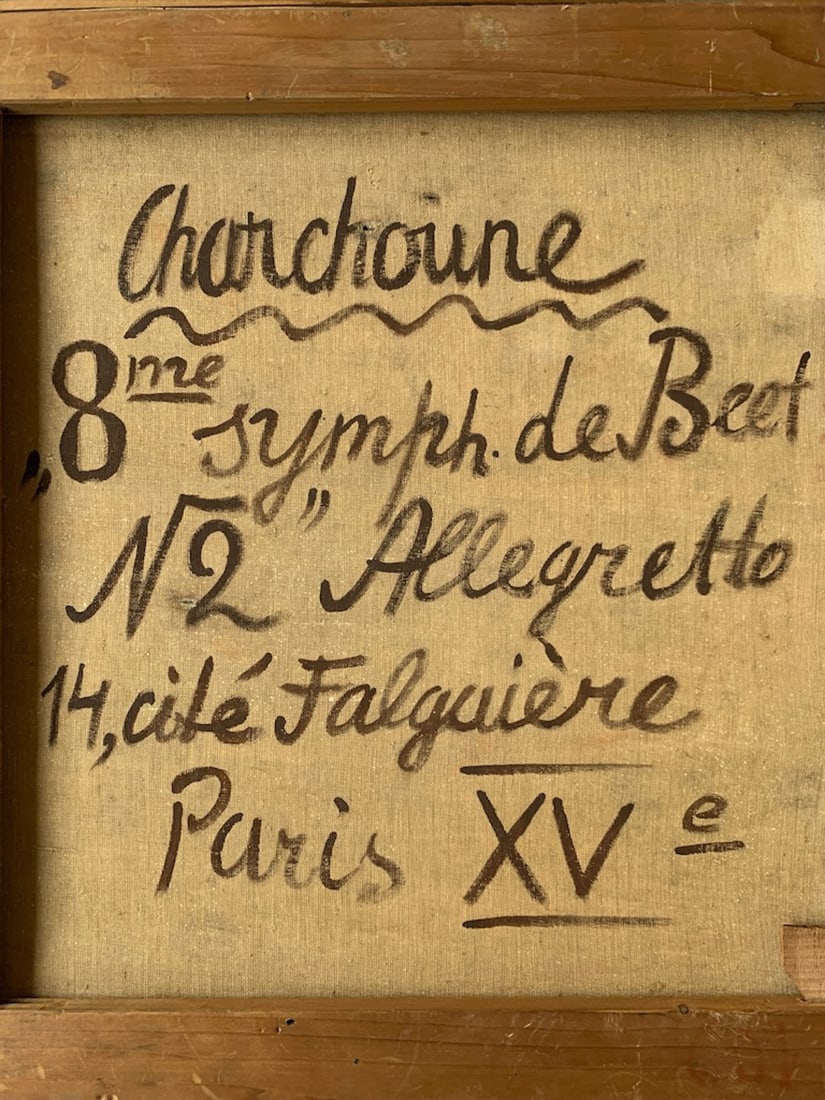 Charchoune
„8me symph. de Beet
N2” Allegretto
14, cité Falguière
Paris XVe